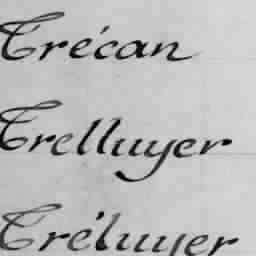 Trécan
Trelluyer
Tréluyer